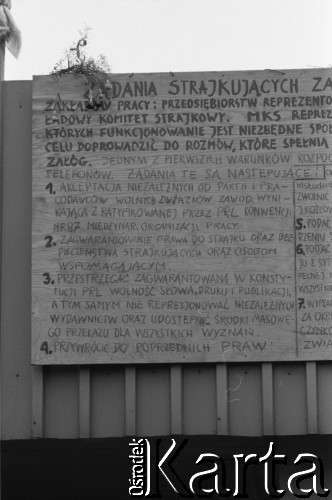 ŻĄDANIA STRAJKUJĄCYCH ZA
ZAKŁADÓW PRACY I PRZEDSIĘBIORSTW REPREZENTO
ŁADOWY KOMITET STRAJKOWY. MKS REPREZ
KTÓRYCH FUNKCJONOWANIE JEST NIEZBĘDNE SPOŁ
CELU DOPROWADZIĆ DO ROZMÓW, KTÓRE SPEŁNIĄ
ZAŁÓG. JEDNYM Z PIERWSZYCH WARUNKÓW ROZPOC
TELEFONÓW. ŻĄDANIA TE SĄ NASTĘPUJĄCE:
1. AKCEPTACJA NIEZALEŻNYCH OD PARTII I PRA-
CODAWCÓW WOLNYCH ZWIĄZKÓW ZAWOD. WYNI-
KAJĄCA Z RATYFIKOWANEJ PRZEZ PRL KONWENCJI
NR 87 MIĘDZYNAR. ORGANIZACJI PRACY.
2. ZAGWARANTOWANIE PRAWA DO STRAJKU ORAZ BEZ-
PIECZEŃSTWA STRAJKUJĄCYCH ORAZ OSOBOM
WSPOMAGAJĄCYM.
3. PRZESTRZEGAĆ ZAGWARANTOWANĄ W KONSTY-
TUCJI PRL WOLNOŚĆ SŁOWA, DRUKU I PUBLIKACJI,
A TYM SAMYM NIE REPRESJONOWAĆ NIEZALEŻNYCH
WYDAWNICTW ORAZ UDOSTĘPNIĆ ŚRODKI MASOWE-
GO PRZEKAZU DLA WSZYSTKICH WYZNAŃ.
4. PRZYWRÓCIĆ DO POPRZEDNICH PRAW:
ZWOLNIĆ
5. PODAĆ
6. PODJĄ
WSZYSTKI
7. WYPŁA
ZA OKR
ZWIĄ
Ośrodek
Karta